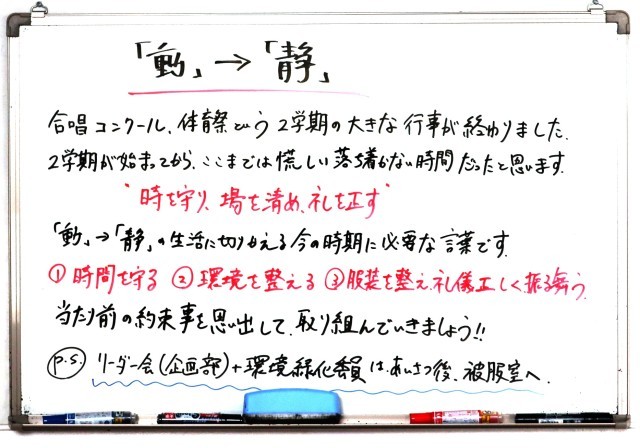 「動」→「静」
合唱コンクール、体育祭という2学期の大きな行事が終わりました。
2学期が始まってから、ここまでは慌しい落ち着かない時間だったと思います。
"時を守り、場を清め、礼を正す"
「動」→「静」の生活に切りかえる今の時期に必要な言葉です。
①時間を守る ②環境を整える ③服装を整え、礼儀正しく振る舞う。
当たり前の約束事を思い出して、取り組んでいきましょう!!
P.S. リーダー会(企画部)+環境緑化委員は、あいさつ後、被服室へ。